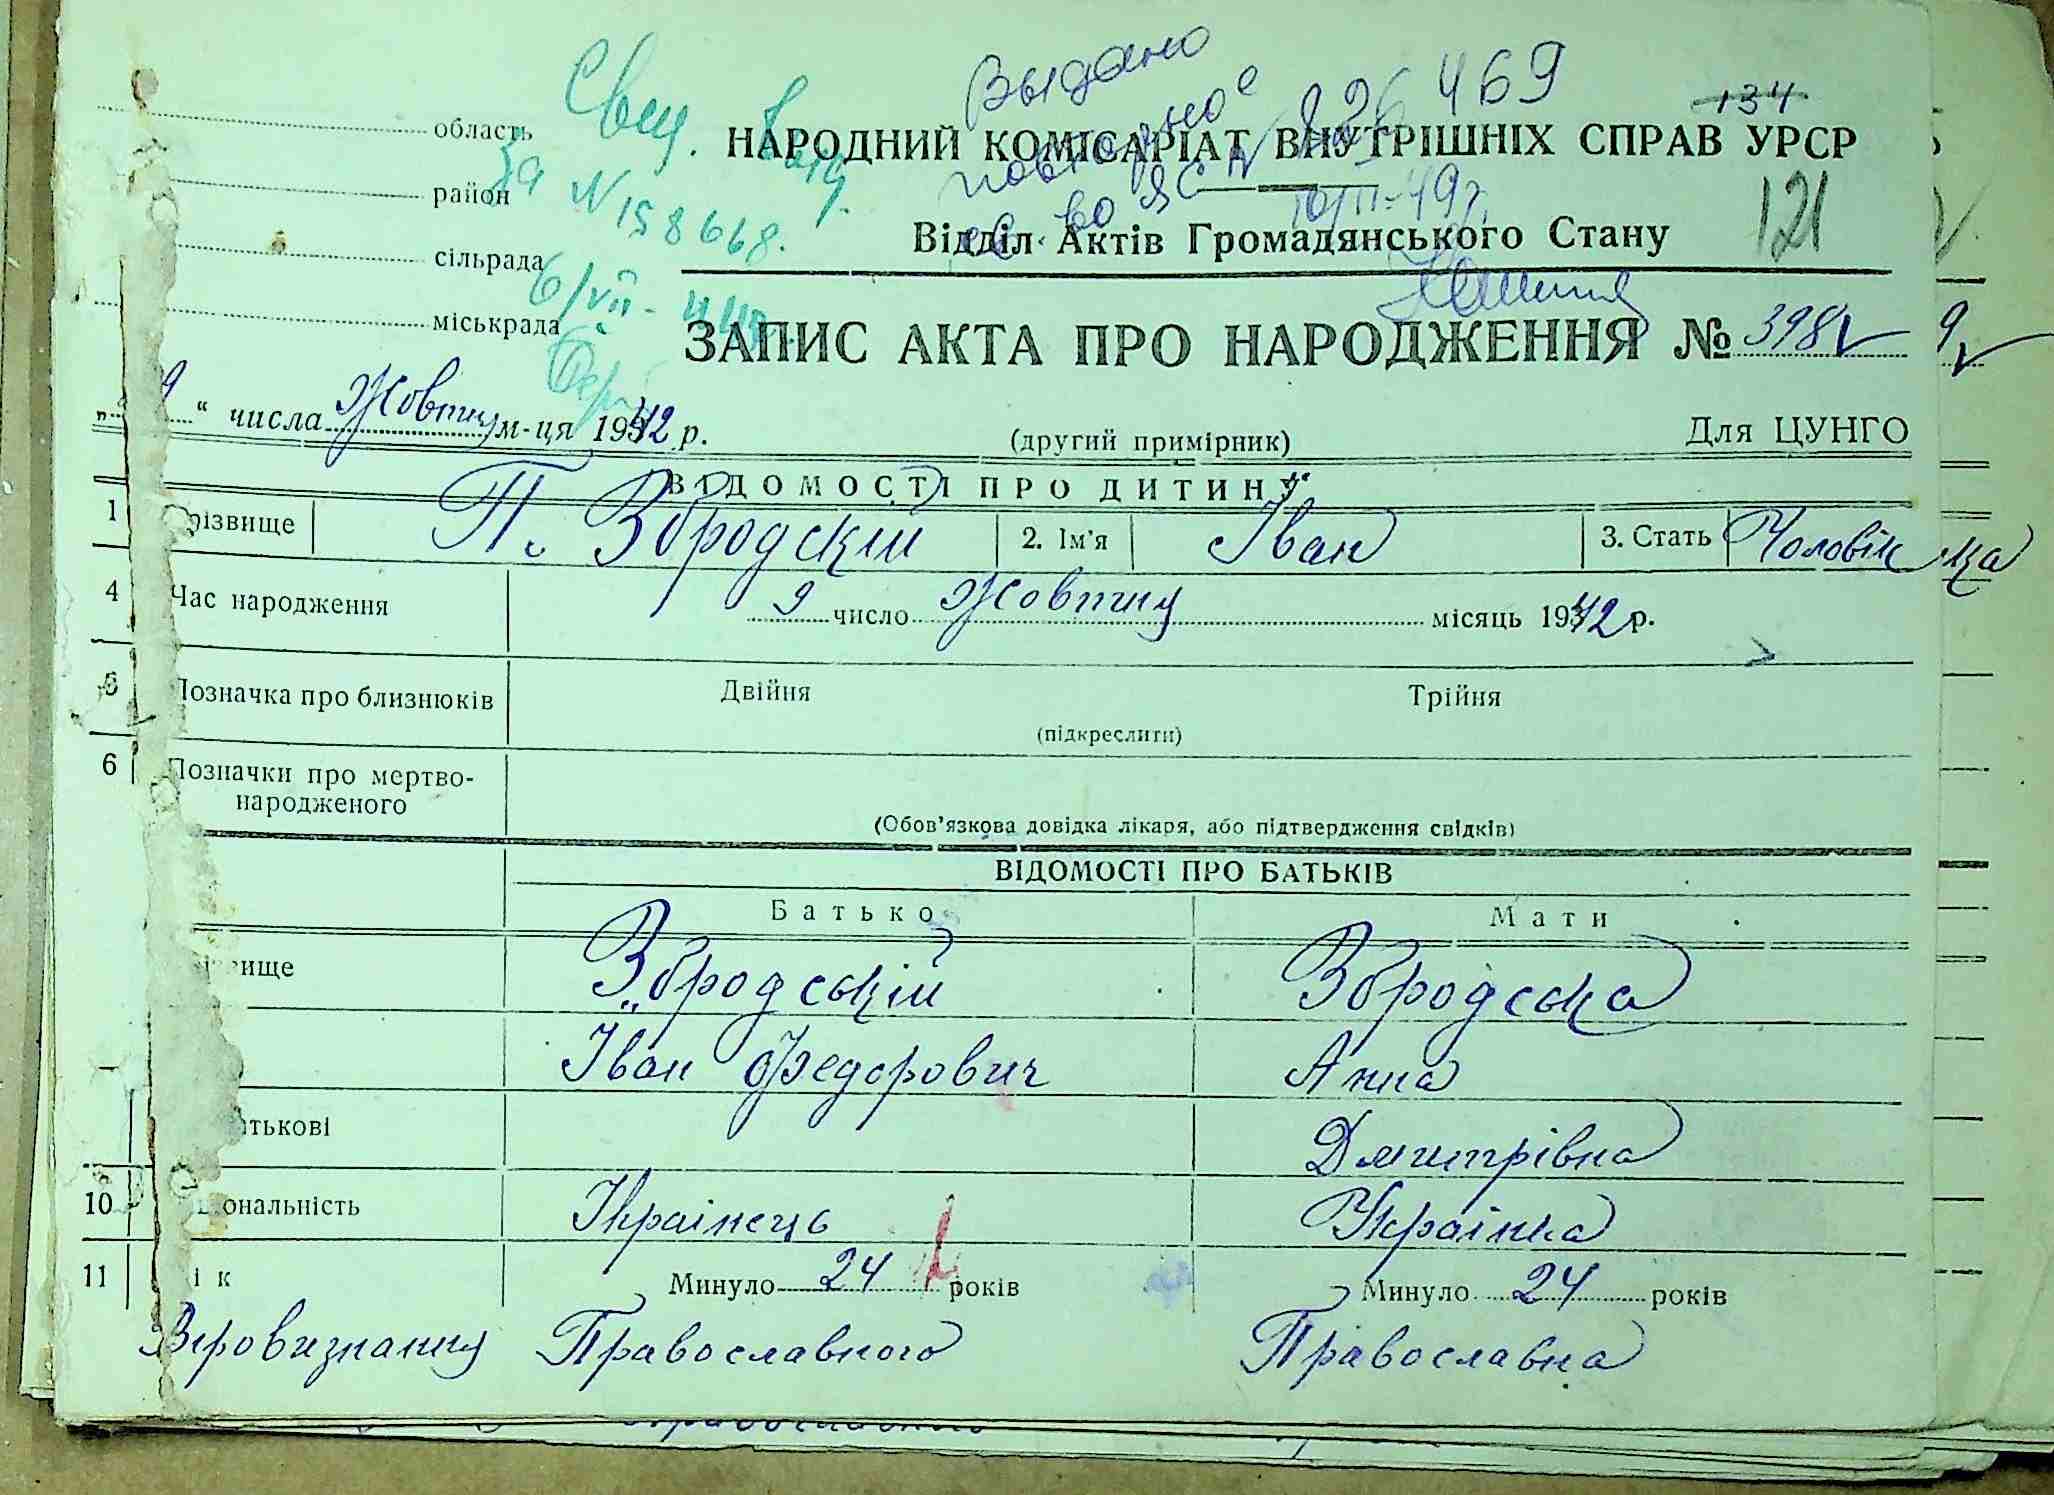 Выдано
повторное
469
134
область
Свид. выд.
НАРОДНИЙ КОМІСАРІАТ ВНУТРІШНІХ СПРАВ УРСР
за N 158668.
район
10/II-49г.
121
Відділ Актів Громадянського Стану
сільрада
міськрада
ЗАПИС АКТА ПРО НАРОДЖЕННЯ № 398
9 " числа Жовтня м-ця 1942 р.
(другий примірник)
Для ЦУНГО
ВІДОМОСТІ ПРО ДИТИНУ
1 різвище П. Збродскій 2. Ім'я Іван 3. Стать Чоловіцка
4 Час народження 9 число Жовтня місяць 1942 р.
5 Позначка про близнюків Двійня Трійня
(підкреслити)
6 Позначки про мертво-
народженого
(Обов'язкова довідка лікаря, або підтвердження свідків)
ВІДОМОСТІ ПРО БАТЬКІВ
Батько Мати
вище Збродській Збродська
Іван Федорович Анна
атькові Дмитрівна
10 ціональність Українець Українка
11 ік Минуло 24 років Минуло 24 років
Віровизнання Православного Православна